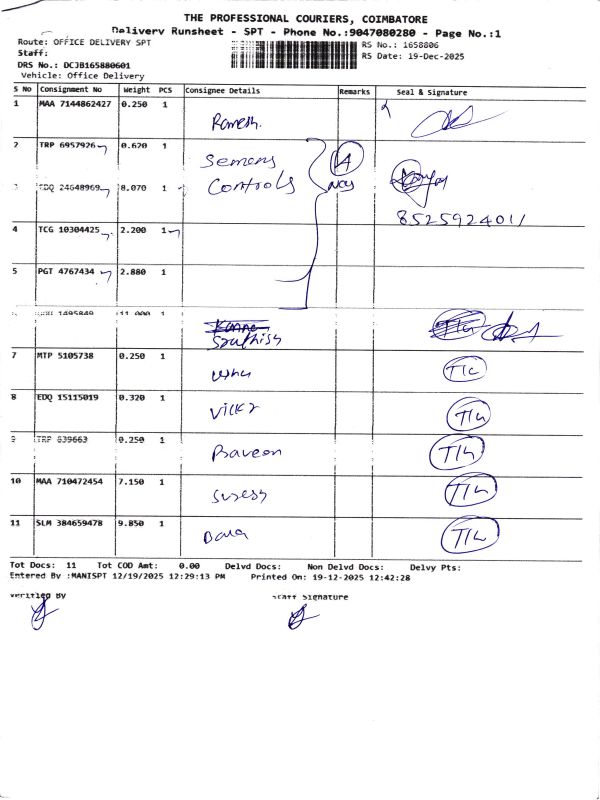 THE PROFESSIONAL COURIERS, COIMBATORE
Delivery Runsheet - SPT - Phone No.:9047080280 - Page No.:1
Route: OFFICE DELIVERY SPT
RS No.: 1658806
Staff:
RS Date: 19-Dec-2025
DRS No.: DCJB165880601
Vehicle: Office Delivery
S No Consignment No Weight PCS Consignee Details Remarks Seal & Signature
1 MAA 7144862427 0.250 1 Ramesh.
2 TRP 6957926 0.620 1 Semens Controls 4 Nos
3 EDQ 24648969 8.070 1
8525924011
4 TCG 10304425 2.200 1
5 PGT 4767434 2.880 1
1495849 11.000 1 Sathish
7 MTP 5105738 0.250 1 T/c
8 EDQ 15115019 0.320 1 Vicky T/c
9 TRP 839663 0.250 1 Praveen T/c
10 MAA 710472454 7.150 1 Suresh T/c
11 SLM 384659478 9.850 1 T/c
Tot Docs: 11 Tot COD Amt: 0.00 Delvd Docs: Non Delvd Docs: Delvy Pts:
Entered By :MANISPT 12/19/2025 12:29:13 PM Printed On: 19-12-2025 12:42:28
Verified By Staff Signature